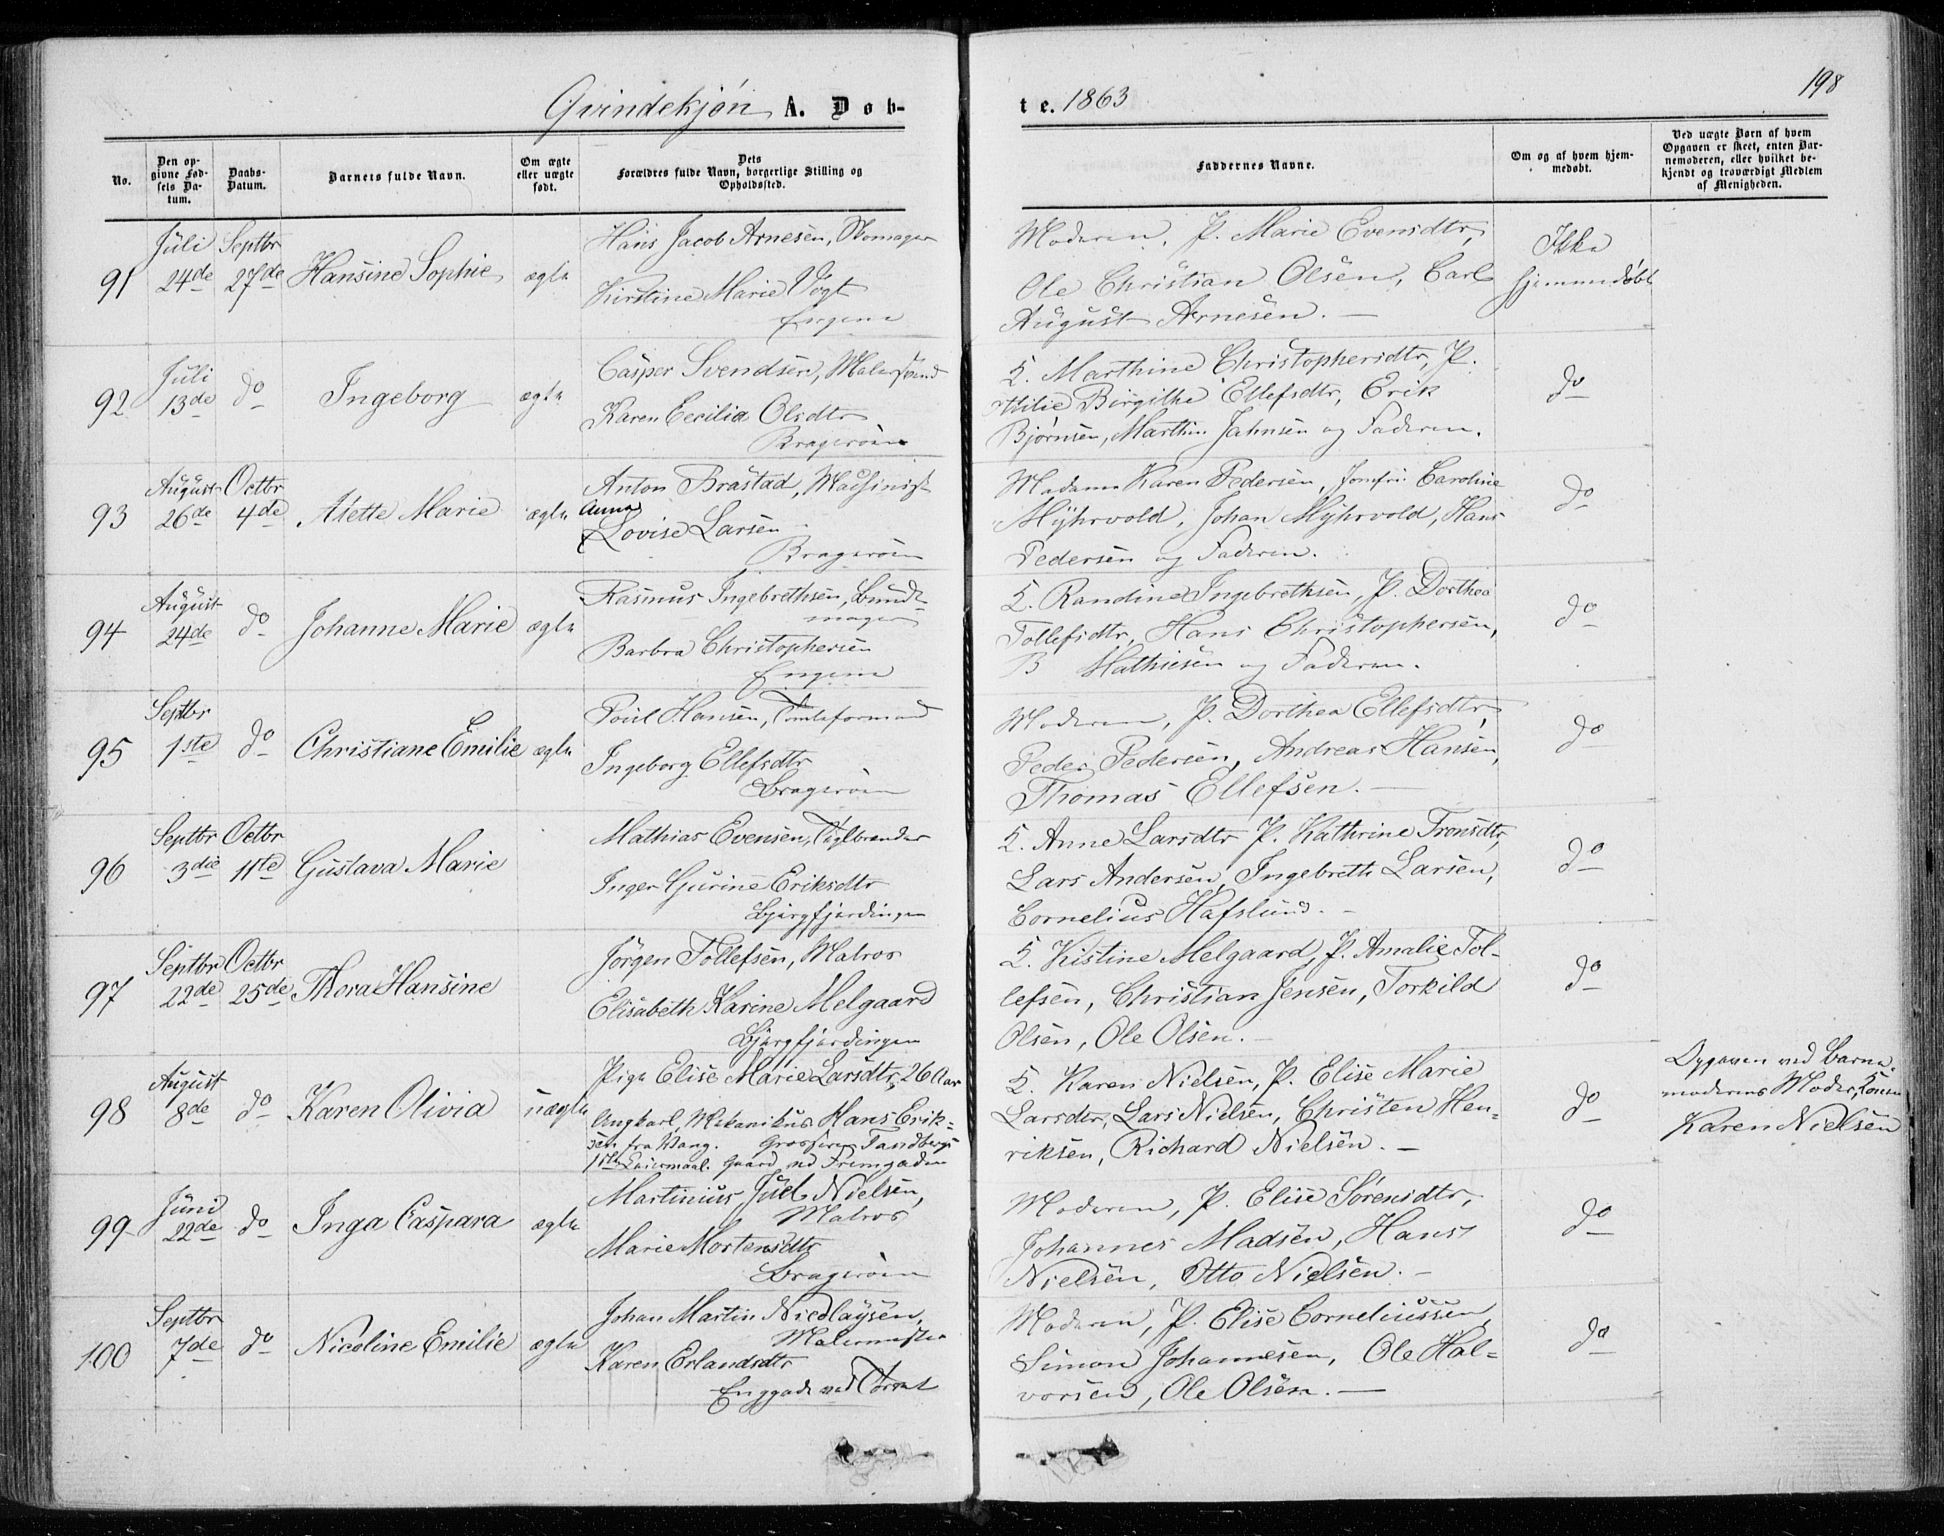 198
Qvindekjön A. Døb-
te. 1863
No.
Den opgivne Fødsels Datum.
Daabs-Datum.
Barnets fulde Navn.
Om ægte eller uægte født.
Dets Forældres fulde Navn, borgerlige Stilling og Opholdssted.
Faddernes Navne.
Om og af hvem hjemmedøbt.
Ved uægte Børn af hvem Opgaven er skeet, enten Barnemoderen, eller hvilket bekjendt og troværdigt Medlem af Menigheden.
91
Juli 24de
Septbr 27de
Hansine Sophie
ægte
Hans Jacob Arnesen, Skomager
Kirstine Marie Vogt
Engene
Moderen, P. Marie Evensdtr,
Ole Christian Olsen, Carl
August Arnesen. —
Ikke
hjemmedøbt
92
Juli 13de
do
Ingeborg
ægte
Casper Svendsen, Malersvend
Karen Cecilia Olsdtr
Bragerøen
K. Marthine Christophersdtr, P.
Birgithe Ellefsdtr, Erik
Bjørnsen, Marthin Jahnsen og Faderen.
do
93
August 26de
Octbr 4de
Asette Marie
ægte
Anton Brastad, Maschinist
Anna
Lovise Larsen
Bragerøen
Madame Karen Pedersen, Jomfru Caroline
Myhrvold, Johan Myhrvold, Hans
Pedersen og Faderen.
do
94
August 24de
do
Johanne Marie
ægte
Rasmus Ingebrethsen, Bundt-
mager
Barbra Christophersen
Engene
K. Randine Ingebrethsen, P. Dorthea
Tollefsdtr, Hans Christophersen,
B Mathiesen og Faderen.
do
95
Septbr 1ste
do
Christiane Emilie
ægte
Poul Hansen, Tomteformand
Ingeborg Ellefsdtr
Bragerøen
Moderen, P. Dorthea Ellefsdtr,
Peder Pedersen, Andreas Hansen,
Thomas Ellefsen. —
do
96
Septbr 3die
Octbr 11te
Gustava Marie
Mathias Evensen, Teglbrænder
Inger Gurine Eriksdtr
Bjergfjerdingen
K. Anne Larsdtr P. Kathrine Tronsdtr,
Lars Andersen, Ingebreth Larsen,
Cornelius Hafslund. —
do
97
Septbr 22de
Octbr 25de
Thora Hansine
Jörgen Tollefsen, Matros
Elisabeth Karine Melgaard
Bjergfjerdingen
K. Kistine Melgaard, P. Amalie Tol-
lefsen, Christian Jensen, Torkild
Olsen, Ole Olsen. —
do
98
August 8de
do
Karen Olivia
uægte
Pige Elise Marie Larsdtr, 26 Aar
Ungkarl, Mekanikus Hans Erik-
sen fra Vang. Grosserer Tandbergs
1ste Leiermaal. Gaard ved Fremgaden
K. Karen Nielsen, P. Elise Marie
Larsdtr, Lars Nielsen, Christen Hen-
riksen, Richard Nielsen. —
do
Opgaven ved Barne-
moderens Moder, Konen
Karen Nielsen
99
Juni 22de
do
Inga Caspara
ægte
Martinius Juel Nielsen,
Matros
Marie Mortensdtr
Bragerøen
Moderen, P. Elise Sørensdtr,
Johannes Madsen, Hans
Nielsen, Otto Nielsen. —
do
100
Septbr 7de
do
Nicoline Emilie
ægte
Johan Martin Nicolaysen,
Malermester
Karen Erlandsdtr
Enggade ved Torvet
Moderen, P. Elise Corneliussen,
Simon Johannesen, Ole Hal-
vorsen, Ole Olsen. —
do